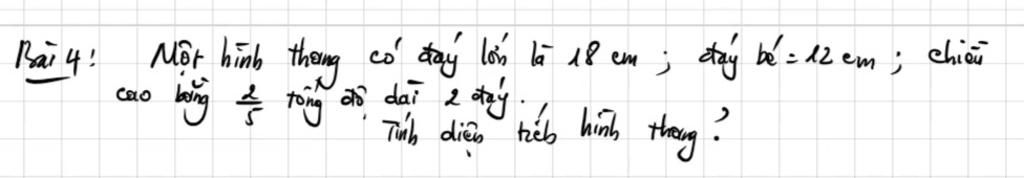 Bài 4: Một hình thang có đáy lớn là 18 cm ; đáy bé = 12 cm ; chiều
cao bằng 2/5 tổng độ dài 2 đáy.
Tính diện tích hình thang ?